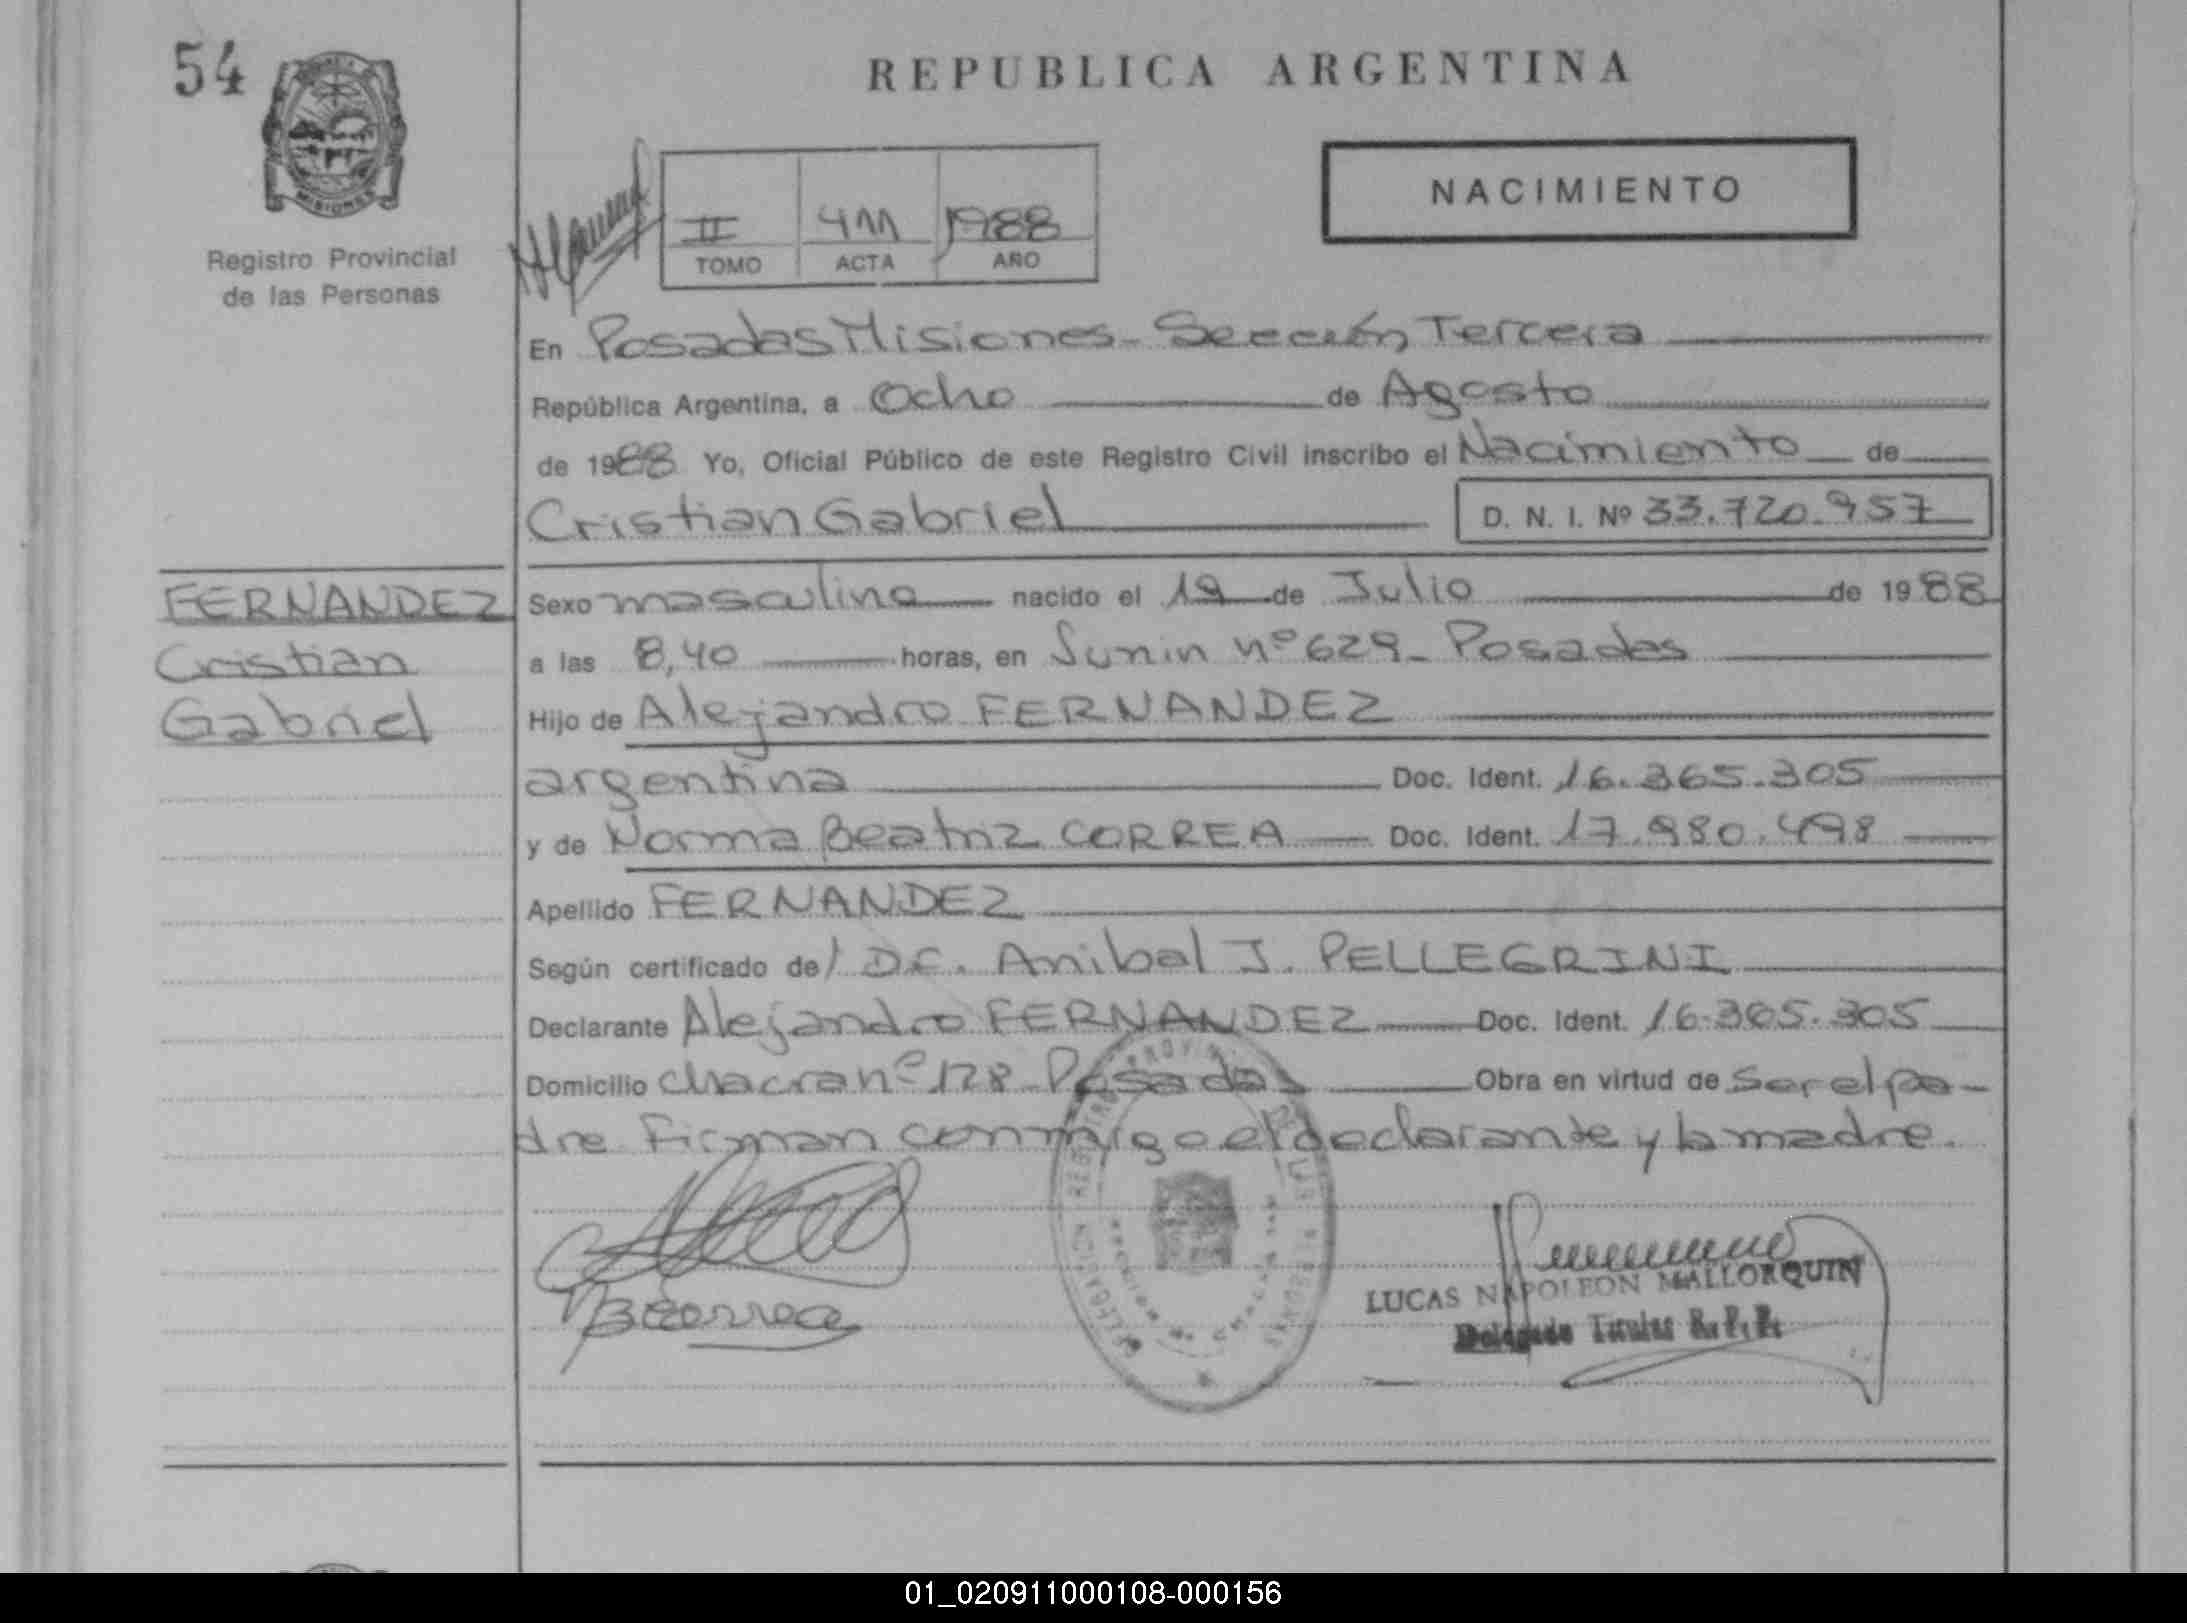 54
REPUBLICA ARGENTINA
MISIONES
Registro Provincial
de las Personas
NACIMIENTO
II 411 1988
TOMO ACTA AÑO
En Posadas Misiones - Sección Tercera
República Argentina, a Ocho de Agosto
de 1988 Yo, Oficial Público de este Registro Civil inscribo el Nacimiento de
Cristian Gabriel D. N. I. Nº 33.720.957
FERNANDEZ
Cristian
Gabriel
Sexo masculino nacido el 19 de Julio de 1988
a las 8,40 horas, en Junin nº 629 - Posadas
Hijo de Alejandro FERNANDEZ
argentina Doc. Ident. 16.365.305
y de Norma Beatriz CORREA Doc. Ident. 17.980.498
Apellido FERNANDEZ
Según certificado de/ Dr. Anibal J. PELLEGRINI
Declarante Alejandro FERNANDEZ Doc. Ident. 16.365.305
Domicilio chacra nº 128 Posadas Obra en virtud de Ser el pa-
dre Firman conmigo el declarante y la madre.
DELEGACION REGISTRO PROVIN DE LAS PERSONAS
BCorrea
LUCAS NAPOLEON MALLORQUIN
Delegado Titular R. P. P.
01_020911000108-000156